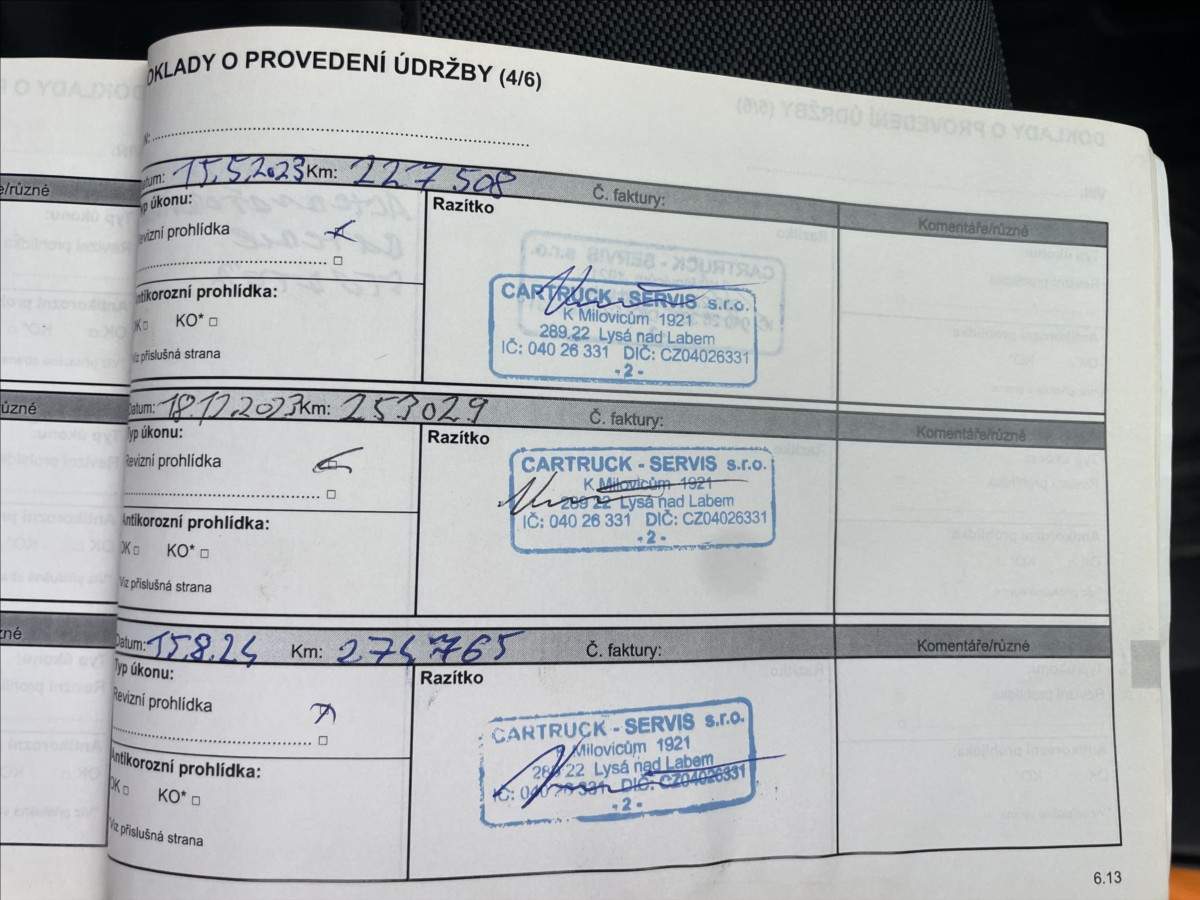 OKLADY O PROVEDENÍ ÚDRŽBY (4/6)
e/různé
atum: 15.5.2023 Km: 227 508 Č. faktury: Komentáře/různé
yp úkonu:
Razítko
evizní prohlídka
ntikorozní prohlídka:
OK KO*
Viz příslušná strana
CARTRUCK - SERVIS s.r.o.
K Milovicům 1921
289 22 Lysá nad Labem
IČ: 040 26 331 DIČ: CZ04026331
- 2 -
ůzné
Datum: 18.12.2023 Km: 253 029 Č. faktury: Komentáře/různé
Typ úkonu:
Razítko
Revizní prohlídka
Antikorozní prohlídka:
OK KO*
Viz příslušná strana
CARTRUCK - SERVIS s.r.o.
K Milovicům 1921
289 22 Lysá nad Labem
IČ: 040 26 331 DIČ: CZ04026331
- 2 -
zné
Datum: 15.8.24 Km: 274 765 Č. faktury: Komentáře/různé
Typ úkonu:
Razítko
Revizní prohlídka
Antikorozní prohlídka:
OK KO*
*Viz příslušná strana
CARTRUCK - SERVIS s.r.o.
K Milovicům 1921
289 22 Lysá nad Labem
IČ: 040 26 331 DIČ: CZ04026331
- 2 -
6.13